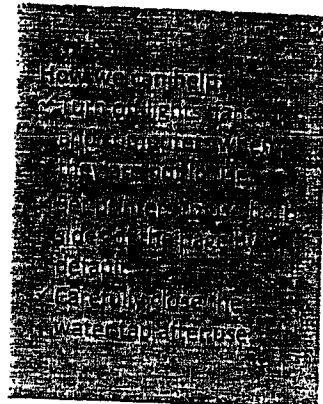 How we can help:
Turn off lights, fans
when
they are not in use.
Set printers to use both
sides of the page by
default.
Carefully close the
water tap after use.